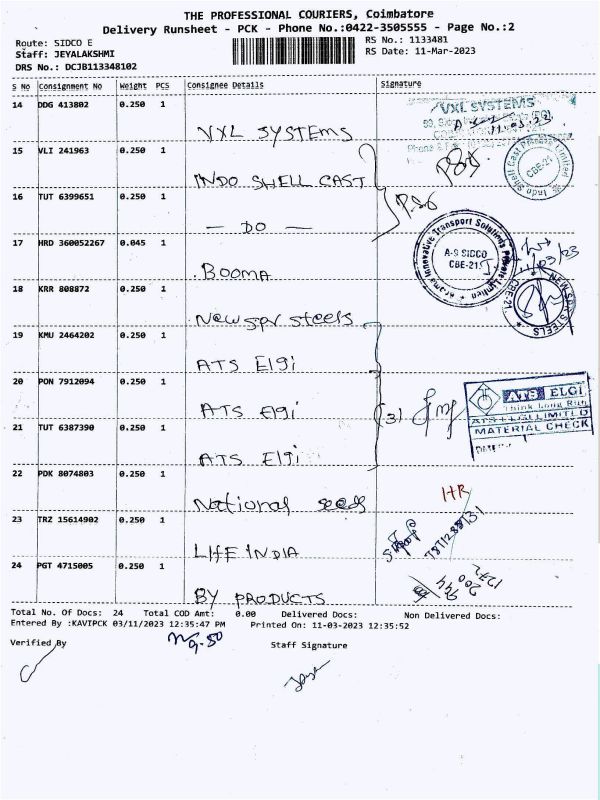 THE PROFESSIONAL COURIERS, Coimbatore
Delivery Runsheet - PCK - Phone No.:0422-3505555 - Page No.:2
Route: SIDCO E
Staff: JEYALAKSHMI
DRS No.: DCJB113348102
RS No.: 1133481
RS Date: 11-Mar-2023
S No Consignment No Weight PCS Consignee Details Signature
14 DDG 413802 0.250 1 VXL SYSTEMS
VXL SYSTEMS
15 VLI 241963 0.250 1 INDO SHELL CAST
Indo Shell Cast Private Limited
CBE-21
16 TUT 6399651 0.250 1 — DO —
17 HRD 360052267 0.045 1 BOOMA
Innovative Transport Solutions Private Limited
A-9 SIDCO
CBE-21
11/03/23
18 KRR 808872 0.250 1 New spr steels
NEW SPR STEELS
CBE-21
19 KMU 2464202 0.250 1 ATS Elgi
20 PON 7912094 0.250 1 ATS Elgi
(3)
ATS ELGI
Think Long Run
ATS ELGI LIMITED
MATERIAL CHECK
DATE
21 TUT 6387390 0.250 1 ATS Elgi
22 PDK 8074803 0.250 1 National seeds
23 TRZ 15614902 0.250 1 LIFE INDIA
24 PGT 4715005 0.250 1 BY PRODUCTS
Total No. Of Docs: 24 Total COD Amt: 0.00 Delivered Docs: Non Delivered Docs:
Entered By :KAVIPCK 03/11/2023 12:35:47 PM Printed On: 11-03-2023 12:35:52
Verified By
Staff Signature